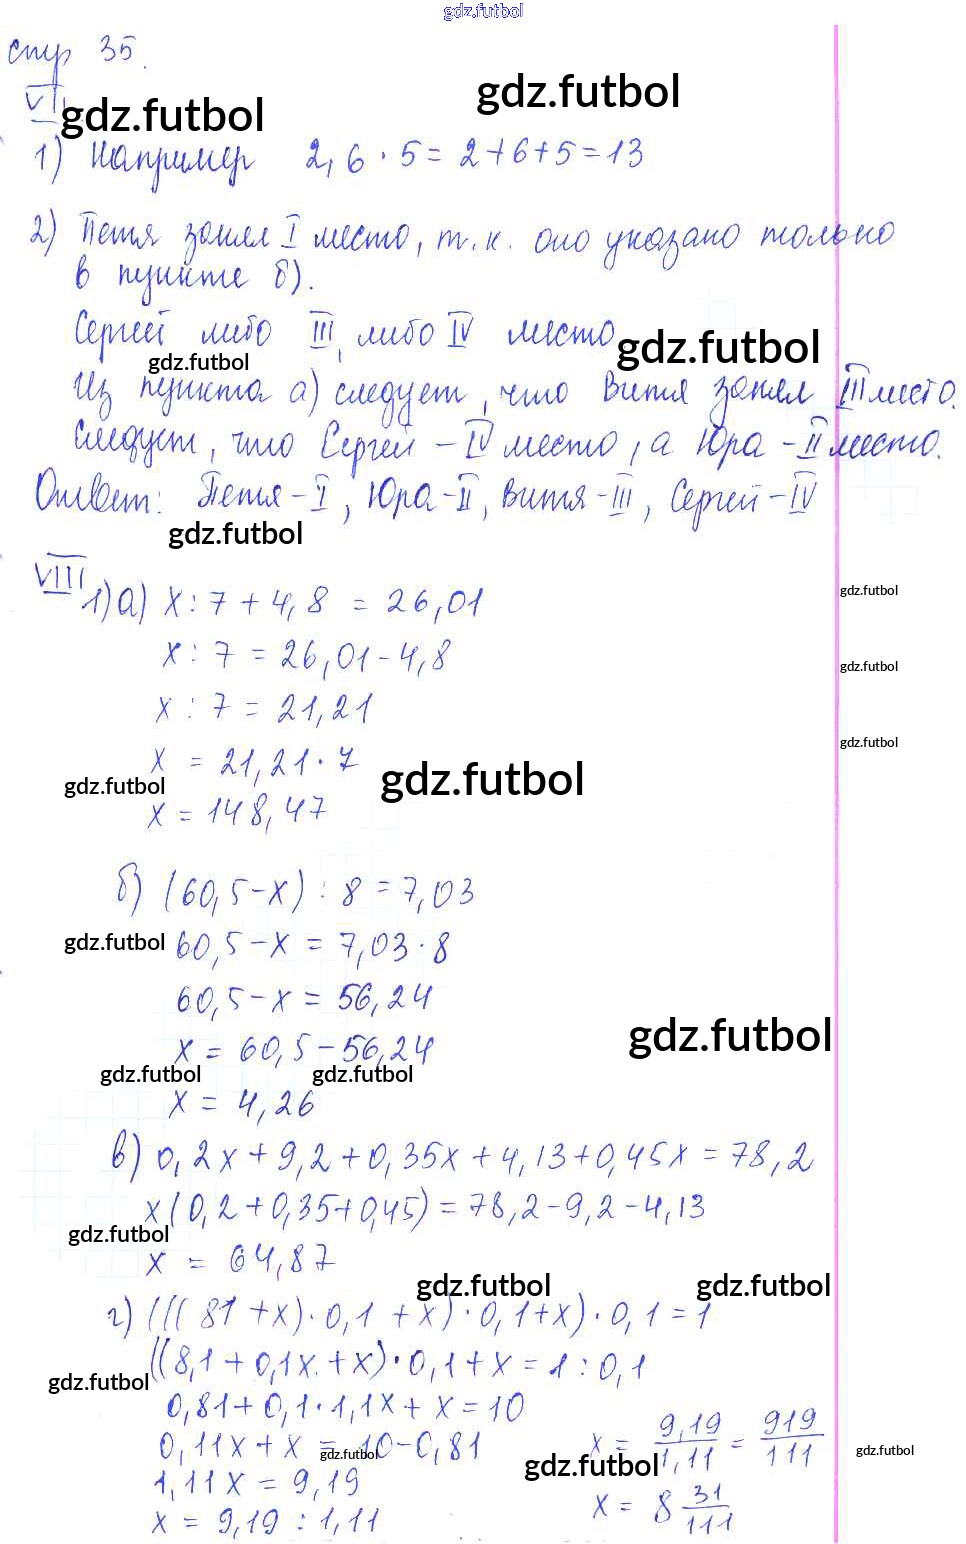 gdz.futbol
стр 35.
VII
gdz.futbol
gdz.futbol
1) Например 2,6 · 5 = 2+6+5=13
2) Петя занял I место, т.к. оно указано только
в пункте б).
Сергей либо III, либо IV место
gdz.futbol
gdz.futbol
Из пункта а) следует, что Витя занял III место.
следует, что Сергей - IV место, а Юра - II место.
Ответ: Петя - I, Юра - II, Витя - III, Сергей - IV
gdz.futbol
VIII
1) а) x : 7 + 4,8 = 26,01
gdz.futbol
x : 7 = 26,01 - 4,8
gdz.futbol
x : 7 = 21,21
gdz.futbol
x = 21,21 · 7
gdz.futbol
gdz.futbol
x = 148,47
б) (60,5 - x) : 8 = 7,03
gdz.futbol
60,5 - x = 7,03 · 8
60,5 - x = 56,24
gdz.futbol
x = 60,5 - 56,24
gdz.futbol
gdz.futbol
x = 4,26
в) 0,2x + 9,2 + 0,35x + 4,13 + 0,45x = 78,2
x (0,2 + 0,35 + 0,45) = 78,2 - 9,2 - 4,13
gdz.futbol
x = 64,87
gdz.futbol
gdz.futbol
г) (((81 + x) · 0,1 + x) · 0,1 + x) · 0,1 = 1
((8,1 + 0,1x + x) · 0,1 + x = 1 : 0,1
gdz.futbol
0,81 + 0,1 · 1,1x + x = 10
0,11x + x = 10 - 0,81
gdz.futbol
x = 9,19/1,11 = 919/111
gdz.futbol
gdz.futbol
1,11x = 9,19
x = 9,19 : 1,11
x = 8 31/111